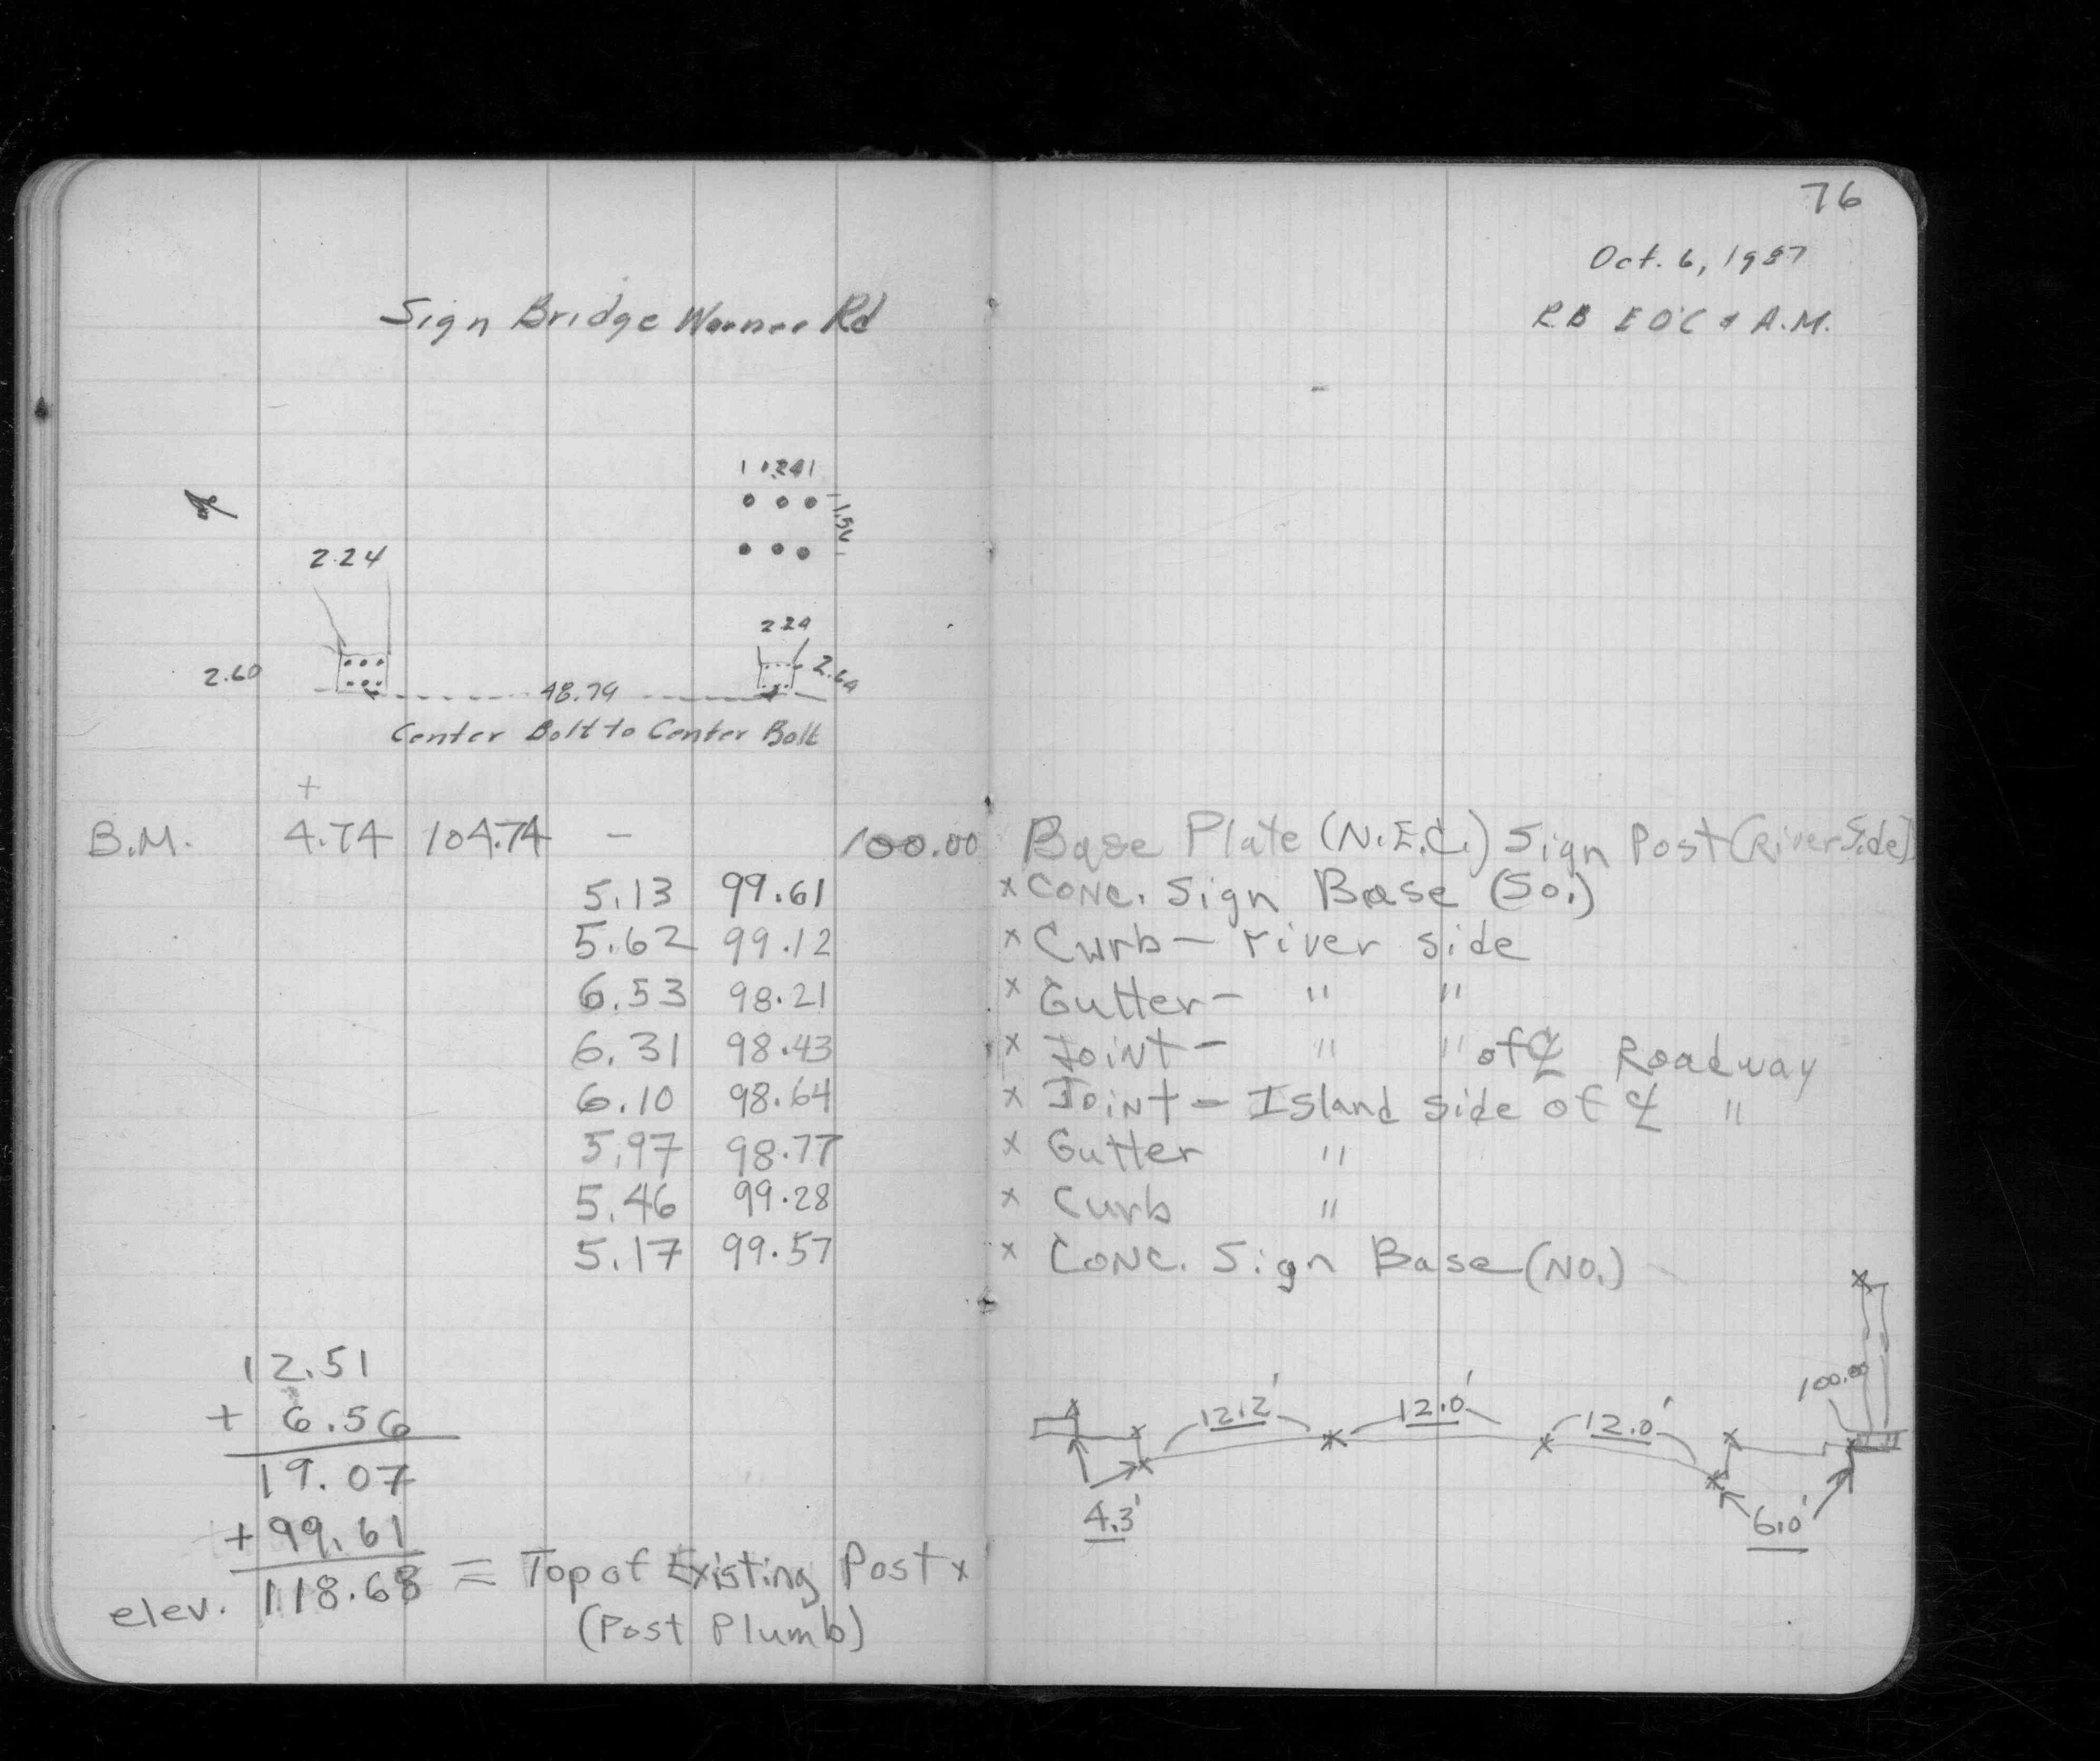 76
Oct. 6, 1987
RB EO'C & A.M.
Sign Bridge Warner Rd
1.24
1.54
2.24
2.24
2.60
2.64
48.79
Center Bolt to Center Bolt
+
B.M. 4.74 104.74 - 100.00 Base Plate (N.E.C.) Sign Post (River Side)
5.13 99.61 x Conc. Sign Base (So.)
5.62 99.12 x Curb - river side
6.53 98.21 x Gutter - " "
6.31 98.43 x Joint - " " of ℄ Roadway
6.10 98.64 x Joint - Island side of ℄ "
5.97 98.77 x Gutter "
5.46 99.28 x Curb "
5.17 99.57 x Conc. Sign Base (No.)
12.51
+ 6.56
19.07
+ 99.61
elev. 118.68 = Top of Existing Post x
(Post Plumb)
100.00
12.2' 12.0' 12.0'
4.3' 6.0'